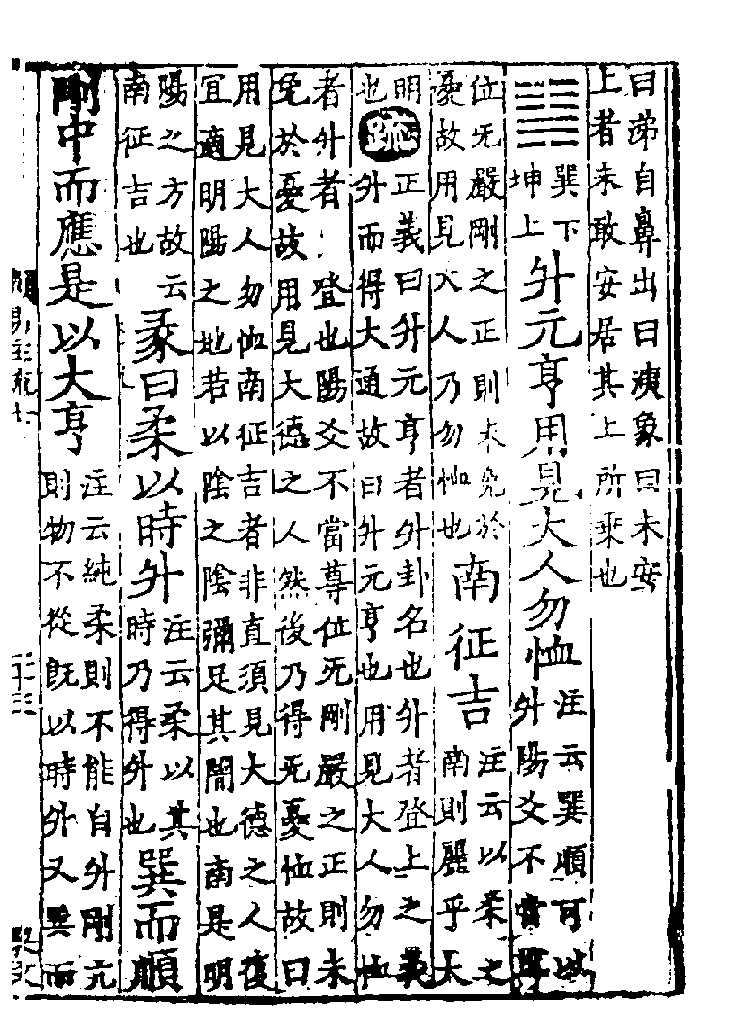 曰涕自鼻出曰洟象曰未安
上者未敢安居其上所乘也
䷭
巽下
坤上
升元亨用見大人勿恤
注云巽順可以
升陽爻不當尊
位无嚴剛之正則未免於
憂故用見大人乃勿恤也
南征吉
注云以柔之
南則麗乎大
明
也
疏
正義曰升元亨者升卦名也升者登上之義
升而得大通故曰升元亨也用見大人勿恤
者升者登也陽爻不當尊位无剛嚴之正則未
免於憂故用見大德之人然後乃得无憂恤故曰
用見大人勿恤南征吉者非直須見大德之人復
宜適明陽之地若以陰之陰彌足其闇也南是明
陽之方故云
南征吉也
彖曰柔以時升
注云柔以其
時乃得升也
巽而順
剛中而應是以大亨
注云純柔則不能自升剛亢
則物不從既以時升又巽而